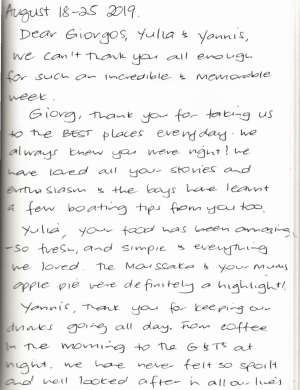 August 18-25 2019.
Dear Giorgos, Yulia & Yannis,
We can't thank you all enough
for such an incredible & memorable
week.
Giorg, thank you for taking us
to the BEST places everyday. We
always knew you were right! We
have loved all your stories and
enthusiasm & the boys have learnt
a few boating tips from you too.
Yulia, your food has been amazing
- so fresh, and simple & everything
we loved. The Moussaka & your mums
apple pie were definitely a highlight!
Yannis, thank you for keeping our
drinks going all day, from coffee
in the morning to the G&Ts at
night. We have never felt so spoilt
and well looked after in all our lives